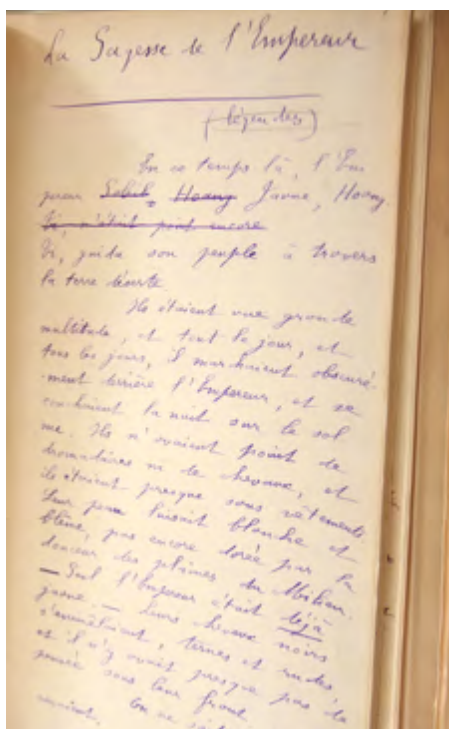 La Sagesse de l'Empereur
(légendes)
En ce temps là, l'Em
pereur Soleil, Hoang Jaune, Hoang.
Ti, n'était point encore
Ti, guida son peuple à travers
la terre déserte.
Ils étaient une grande
multitude, et tout le jour, et
tous les jours, ils marchaient obscuré-
-ment derrière l'Empereur, et se
couchaient la nuit sur le sol
me. Ils n'avaient point de
dromadaires ni de chevaux, et
ils étaient presque sans vêtements.
Leur peau luisait blanche et
blême, pas encore dorée par la
douceur des plaines du
— Seul l'Empereur était déjà
jaune. — Leurs cheveux noirs
s'emmêlaient, ternes et rudes,
et il n'y avait presque pas de
pensée sous leur front
On ne